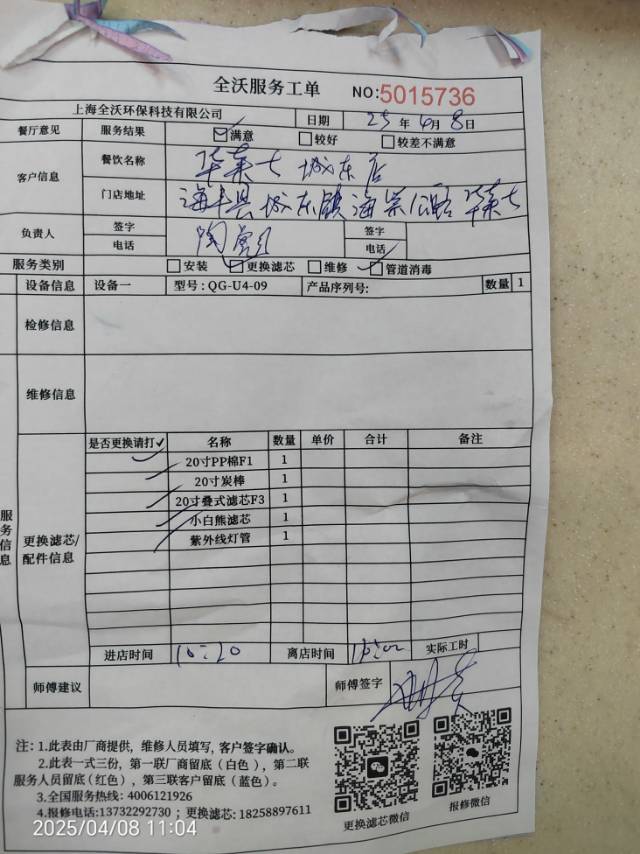 全沃服务工单 NO:5015736
上海全沃环保科技有限公司 日期 25年4月8日
餐厅意见 服务结果 ☑满意 □较好 □较差不满意
客户信息 餐饮名称 华莱士 城东店
门店地址 海丰县城东镇海紫公路华莱士
负责人 签字 陶 签字
电话 电话
服务类别 □安装 ☑更换滤芯 □维修 ☑管道消毒
设备信息 设备一 型号:QG-U4-09 产品序列号: 数量 1
检修信息
维修信息
服务信息 更换滤芯/配件信息
是否更换请打✓ 名称 数量 单价 合计 备注
✓ 20寸PP棉F1 1
✓ 20寸炭棒 1
✓ 20寸叠式滤芯F3 1
✓ 小白熊滤芯 1
✓ 紫外线灯管 1
进店时间 10:20 离店时间 实际工时
师傅建议 师傅签字
注: 1.此表由厂商提供, 维修人员填写, 客户签字确认。
2.此表一式三份, 第一联厂商留底(白色), 第二联
服务人员留底(红色), 第三联客户留底(蓝色)。
3.全国服务热线: 4006121926
4.报修电话:13732292730 ; 更换滤芯: 18258897611
更换滤芯微信 报修微信
2025/04/08 11:04